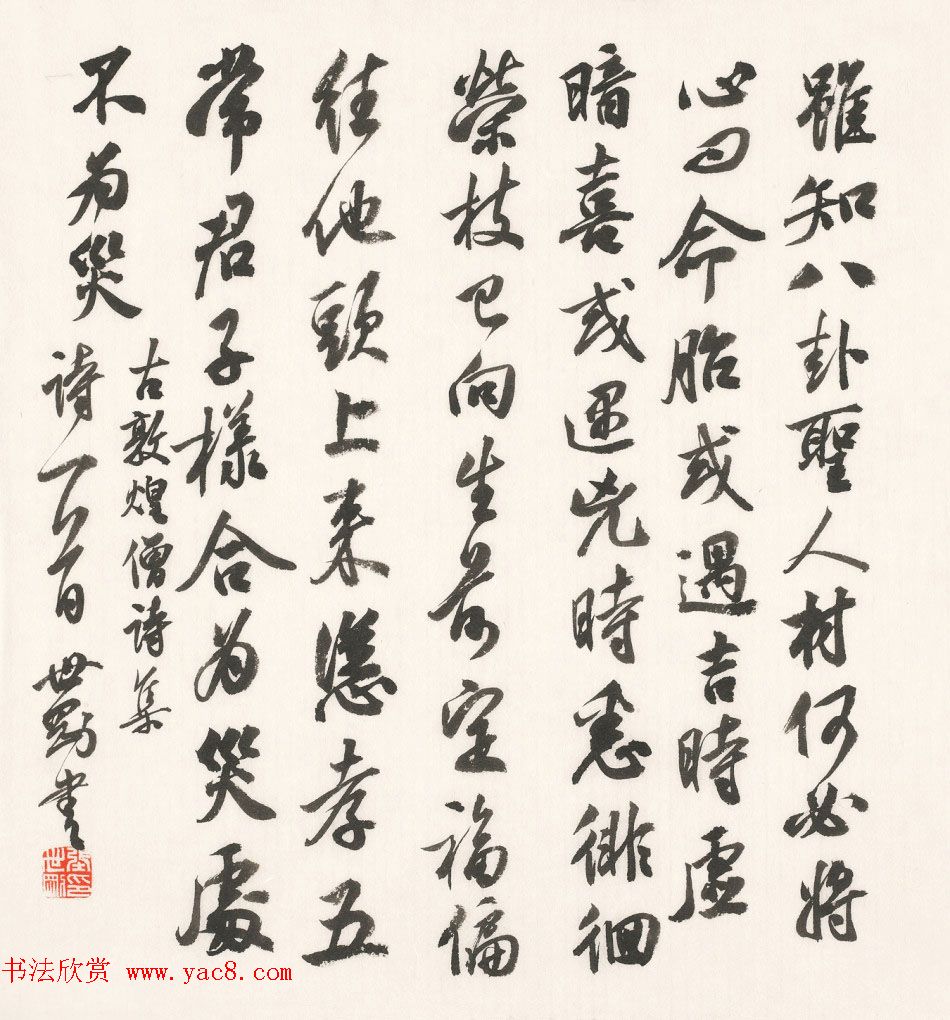 雖知八卦聖人材何必將
心命胎或遇吉時虛
暗喜或遇兇時徘徊
榮枝已向生前定福偏
往他頭上來慈孝五
常君子樣合為哭處
不為哭
古敦煌僧詩集
詩一首 世剛書
书法欣赏 www.yac8.com